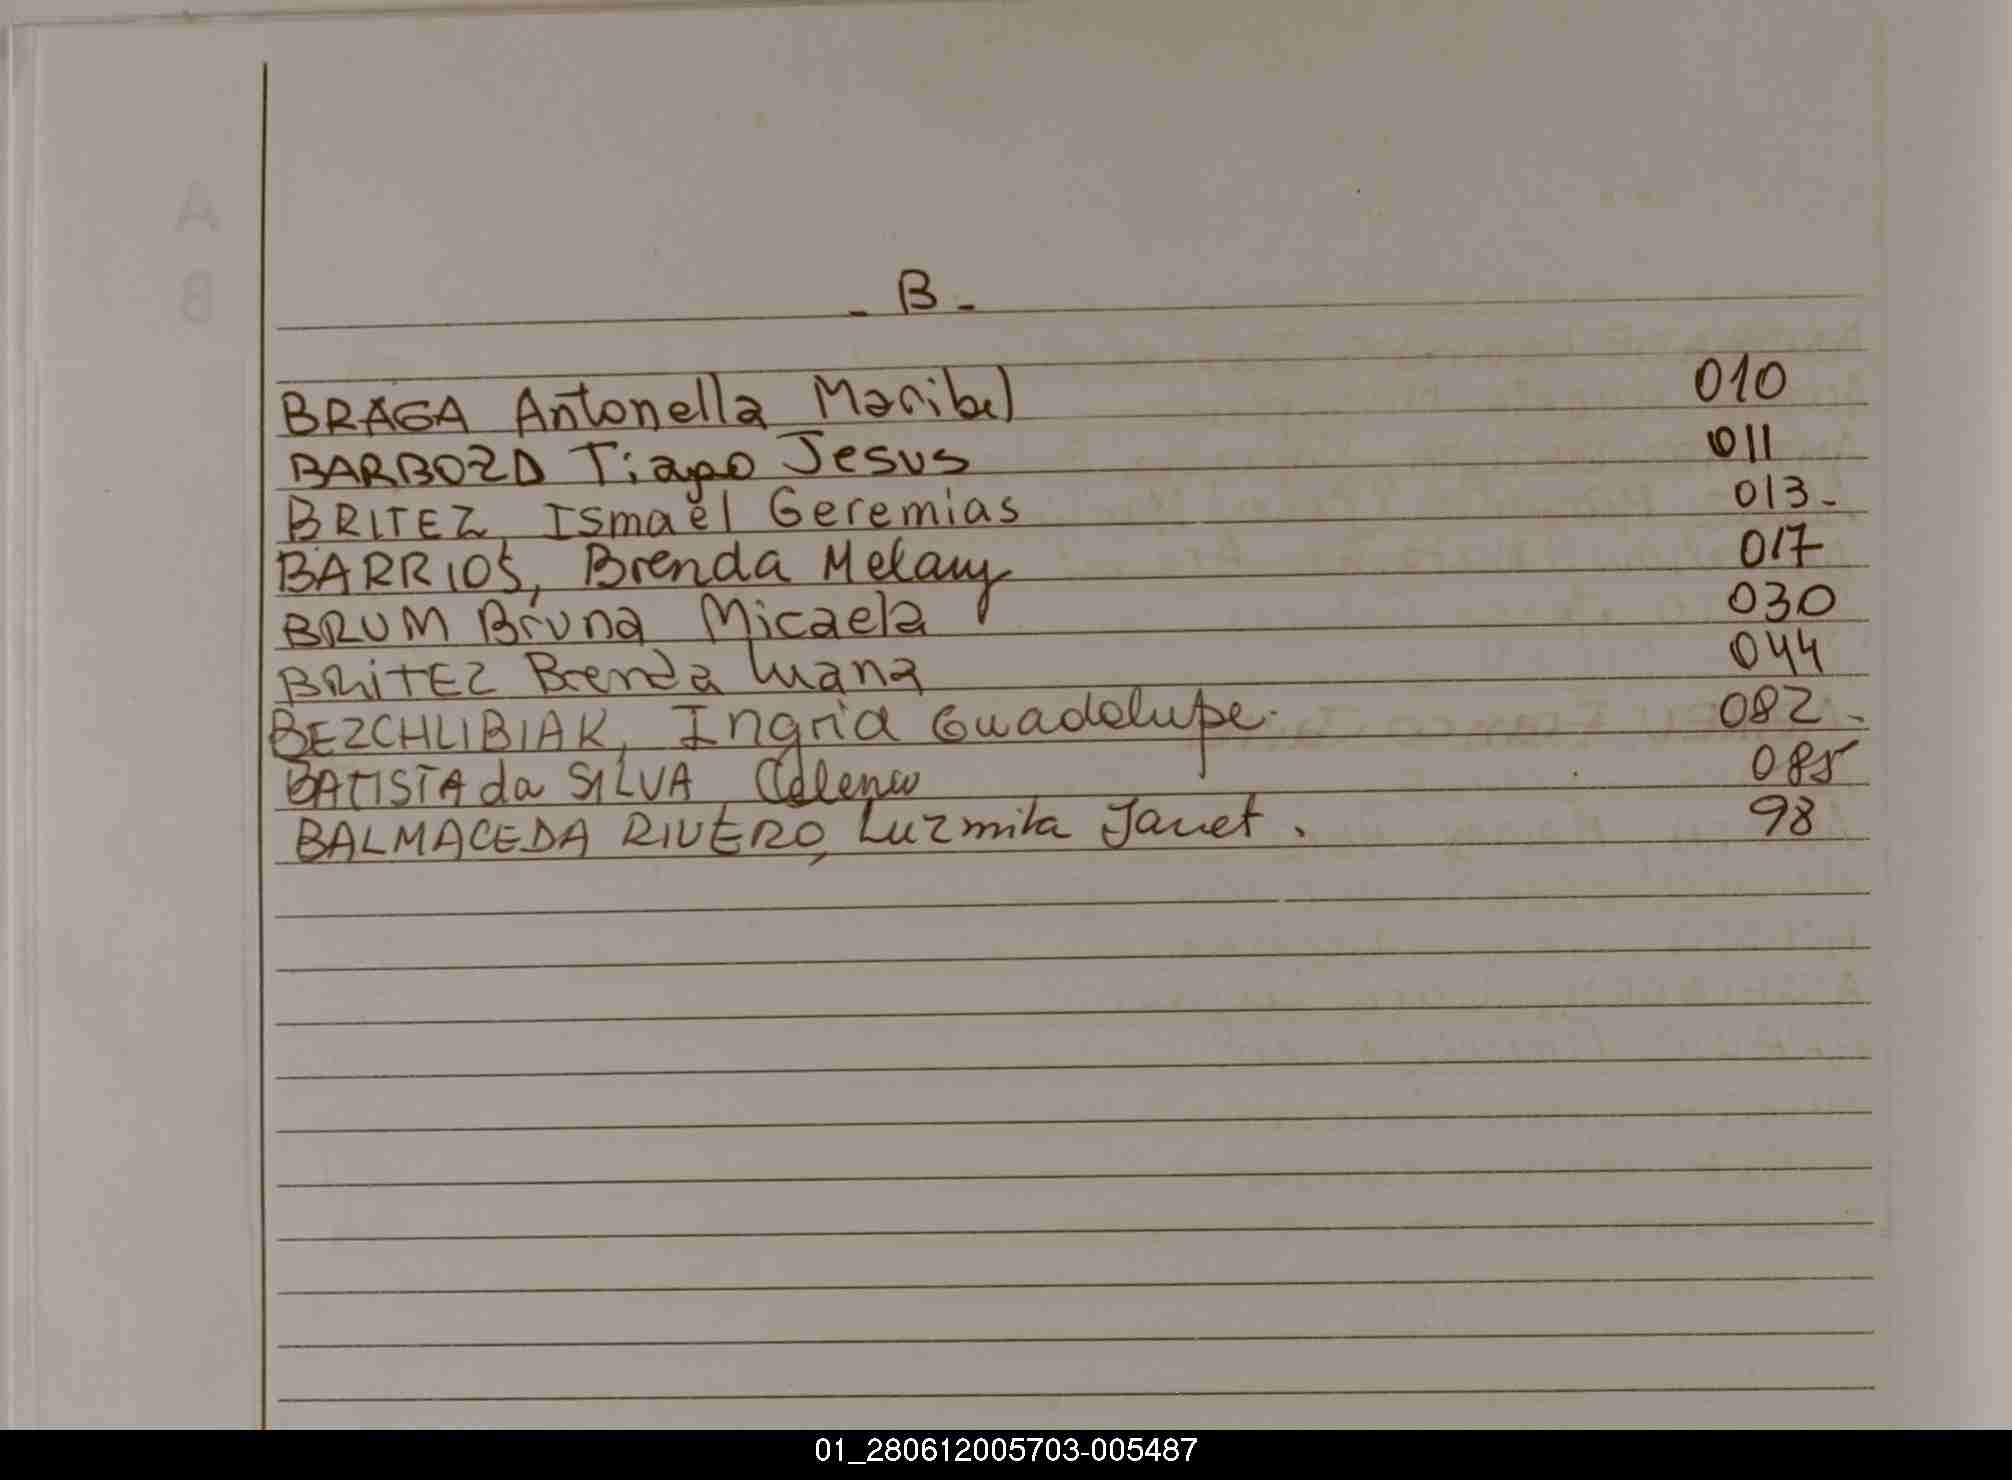 A
B
- B -
BRAGA Antonella Maribel 010
BARBOZA Tiago Jesus 011
BRITEZ Ismael Geremias 013-
BARRIOS, Brenda Melany 017
BRUM Bruna Micaela 030
BRITEZ Brenda Luana 044
BEZCHLIBIAK, Ingrid Guadalupe. 082-
BATISTA da SILVA 085
BALMACEDA RIVERO, Luzmila Janet. 98
01_280612005703-005487